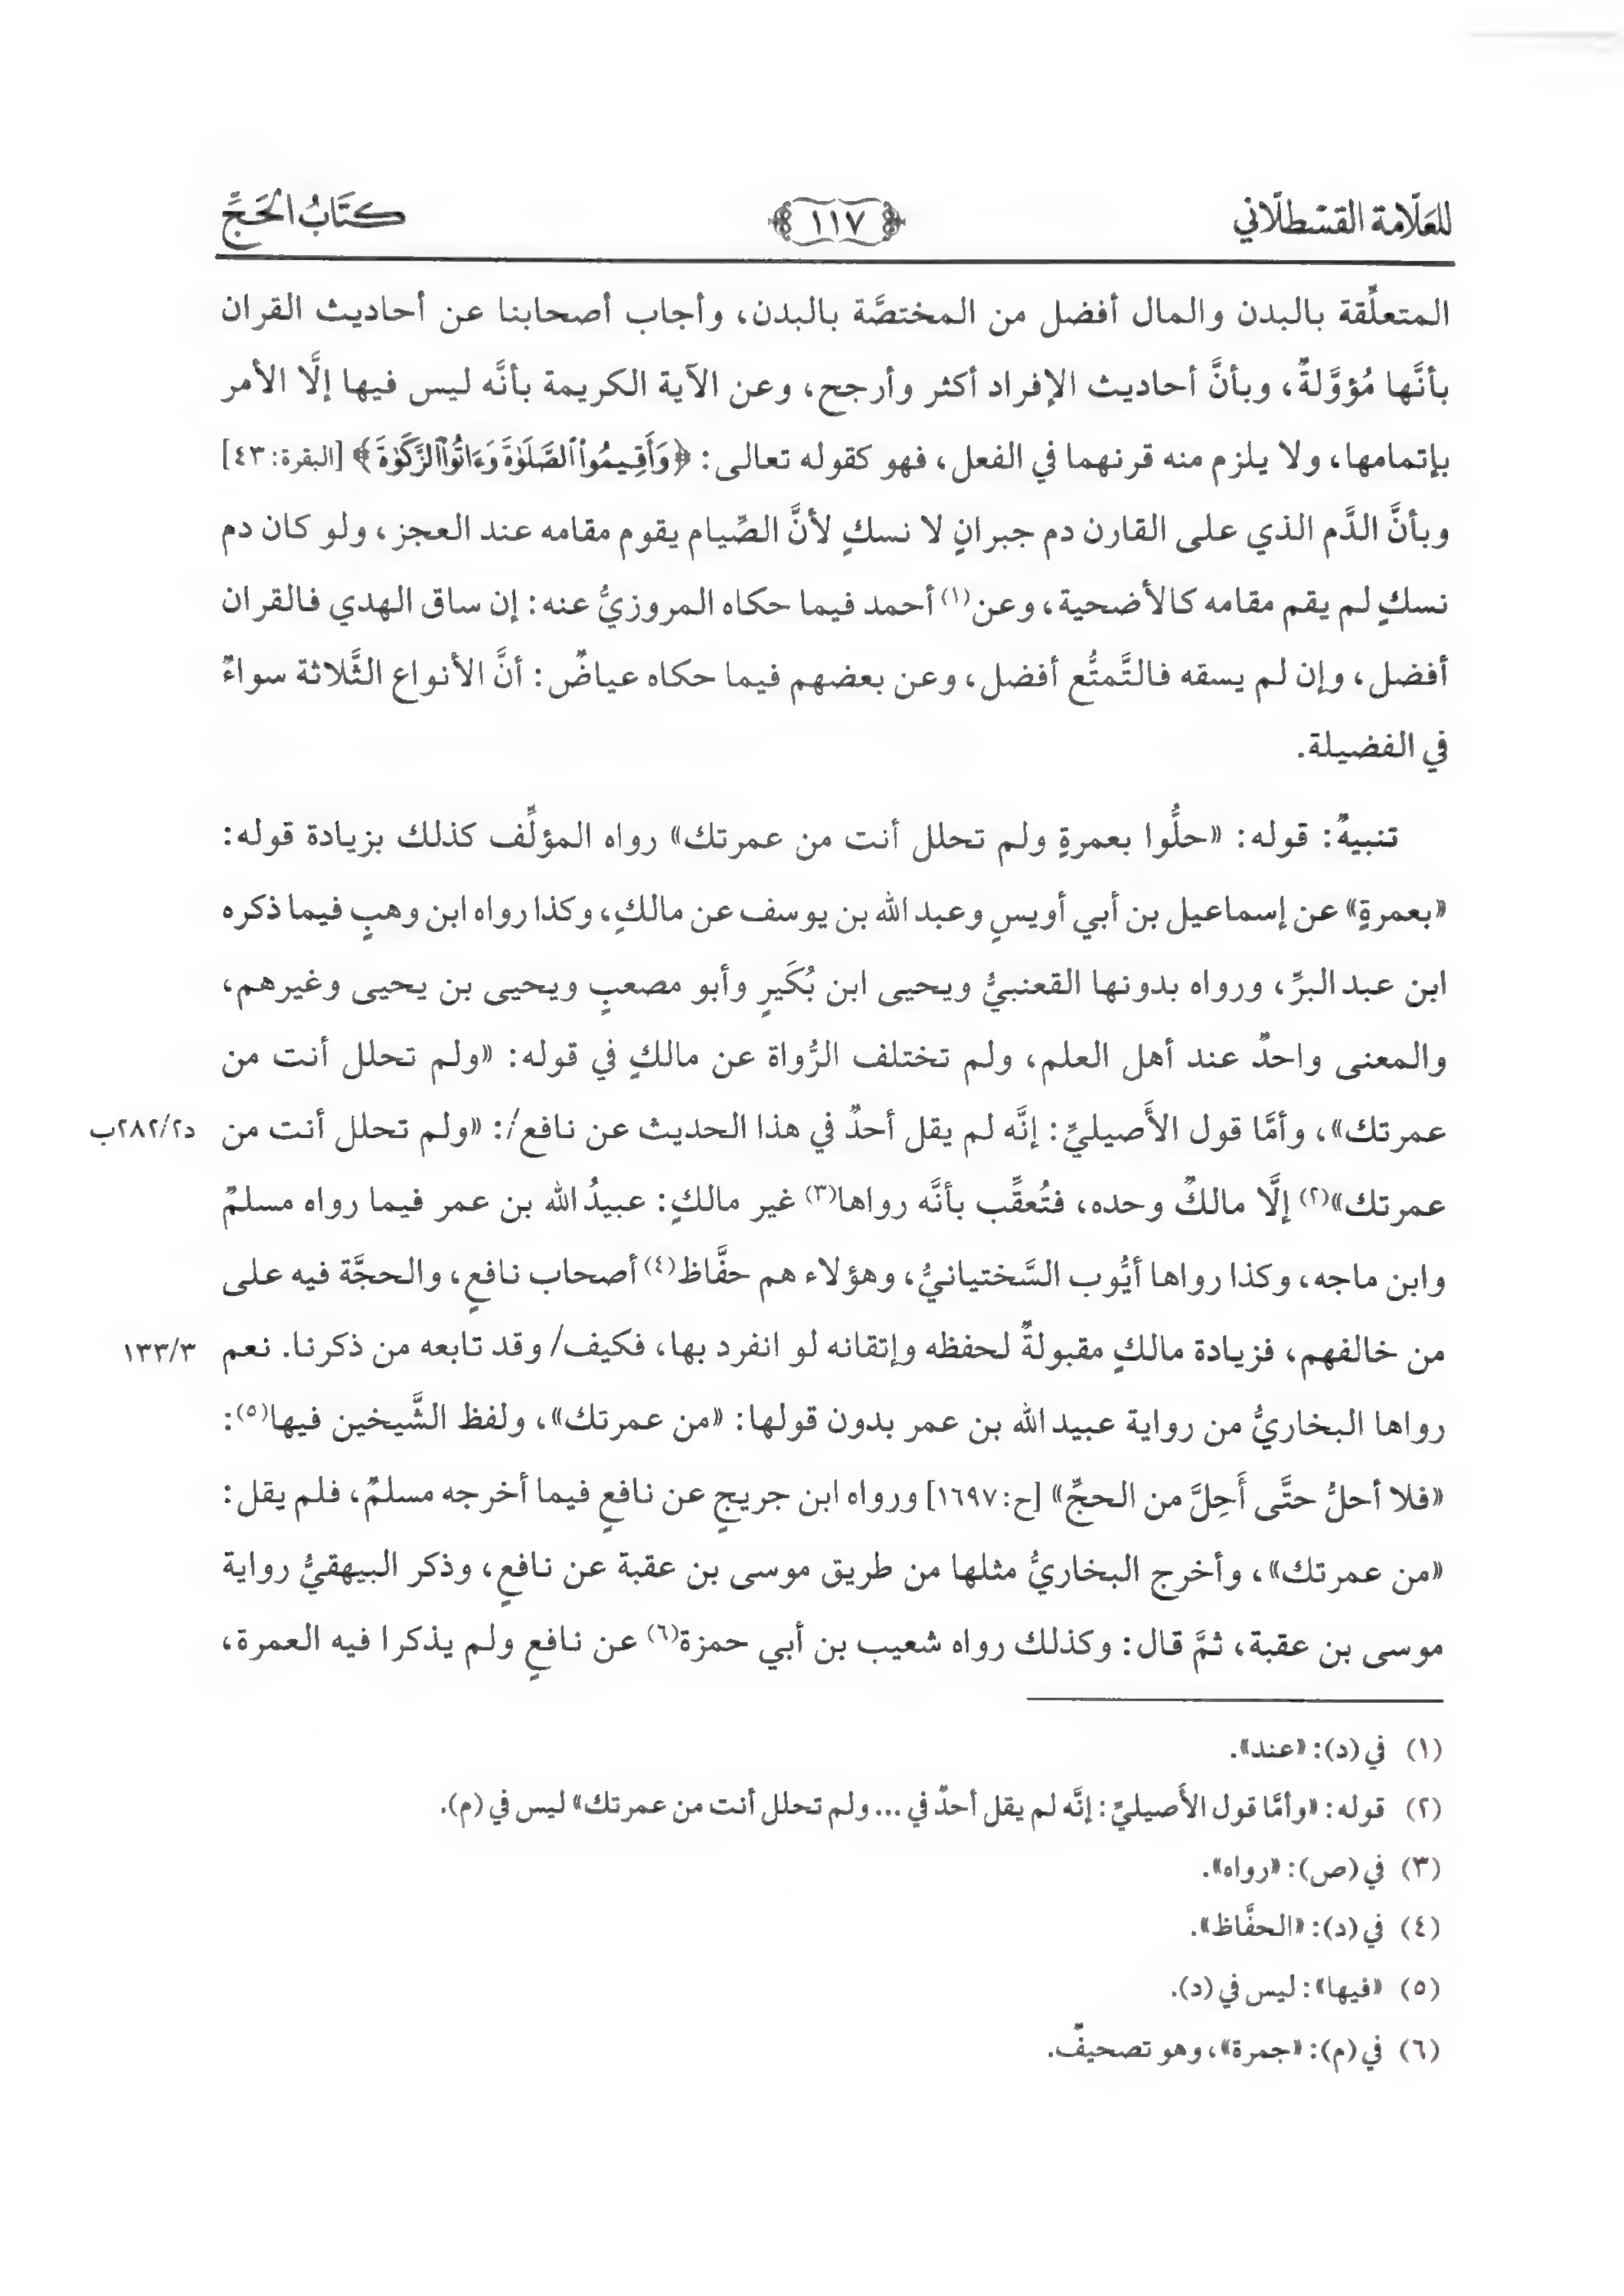 للعلّامة القسطلاني ١١٧ كتَابُ الحَجِّ
المتعلِّقة بالبدن والمال أفضل من المختصَّة بالبدن، وأجاب أصحابنا عن أحاديث القران
بأنَّها مُؤوَّلةٌ، وبأنَّ أحاديث الإفراد أكثر وأرجح، وعن الآية الكريمة بأنَّه ليس فيها إلَّا الأمر
بإتمامها، ولا يلزم منه قرنهما في الفعل، فهو كقوله تعالى: ﴿وَأَقِيمُوا۟ ٱلصَّلَوٰةَ وَءَاتُوا۟ ٱلزَّكَوٰةَ﴾ [البقرة: ٤٣]
وبأنَّ الدَّم الذي على القارن دم جبرانٍ لا نسكٍ لأنَّ الصِّيام يقوم مقامه عند العجز، ولو كان دم
نسكٍ لم يقم مقامه كالأضحية، وعن(١) أحمد فيما حكاه المروزيُّ عنه: إن ساق الهدي فالقران
أفضل، وإن لم يسقه فالتَّمتُّع أفضل، وعن بعضهم فيما حكاه عياضٌ: أنَّ الأنواع الثَّلاثة سواءٌ
في الفضيلة.
تنبيهٌ: قوله: «حلُّوا بعمرةٍ ولم تحلل أنت من عمرتك» رواه المؤلِّف كذلك بزيادة قوله:
«بعمرةٍ» عن إسماعيل بن أبي أويسٍ وعبد الله بن يوسف عن مالكٍ، وكذا رواه ابن وهبٍ فيما ذكره
ابن عبد البرِّ، ورواه بدونها القعنبيُّ ويحيى ابن بُكَيرٍ وأبو مصعبٍ ويحيى بن يحيى وغيرهم،
والمعنى واحدٌ عند أهل العلم، ولم تختلف الرُّواة عن مالكٍ في قوله: «ولم تحلل أنت من
عمرتك»، وأمَّا قول الأَصيليِّ: إنَّه لم يقل أحدٌ في هذا الحديث عن نافع/: «ولم تحلل أنت من د٢٨٢/٢ب
عمرتك»(٢) إلَّا مالكٌ وحده، فتُعقِّب بأنَّه رواها(٣) غير مالكٍ: عبيدُ الله بن عمر فيما رواه مسلمٌ
وابن ماجه، وكذا رواها أيُّوب السَّختيانيُّ، وهؤلاء هم حفَّاظ(٤) أصحاب نافعٍ، والحجَّة فيه على
من خالفهم، فزيادة مالكٍ مقبولةٌ لحفظه وإتقانه لو انفرد بها، فكيف/ وقد تابعه من ذكرنا. نعم ١٣٣/٣
رواها البخاريُّ من رواية عبيد الله بن عمر بدون قولها: «من عمرتك»، ولفظ الشَّيخين فيها(٥):
«فلا أحلُّ حتَّى أَحِلَّ من الحجِّ» [ح: ١٦٩٧] ورواه ابن جريجٍ عن نافعٍ فيما أخرجه مسلمٌ، فلم يقل:
«من عمرتك»، وأخرج البخاريُّ مثلها من طريق موسى بن عقبة عن نافعٍ، وذكر البيهقيُّ رواية
موسى بن عقبة، ثمَّ قال: وكذلك رواه شعيب بن أبي حمزة(٦) عن نافعٍ ولم يذكرا فيه العمرة،
(١) في (د): «عند».
(٢) قوله: «وأمَّا قول الأَصيليِّ: إنَّه لم يقل أحدٌ في ... ولم تحلل أنت من عمرتك» ليس في (م).
(٣) في (ص): «رواه».
(٤) في (د): «الحفَّاظ».
(٥) «فيها»: ليس في (د).
(٦) في (م): «جمرة»، وهو تصحيفٌ.